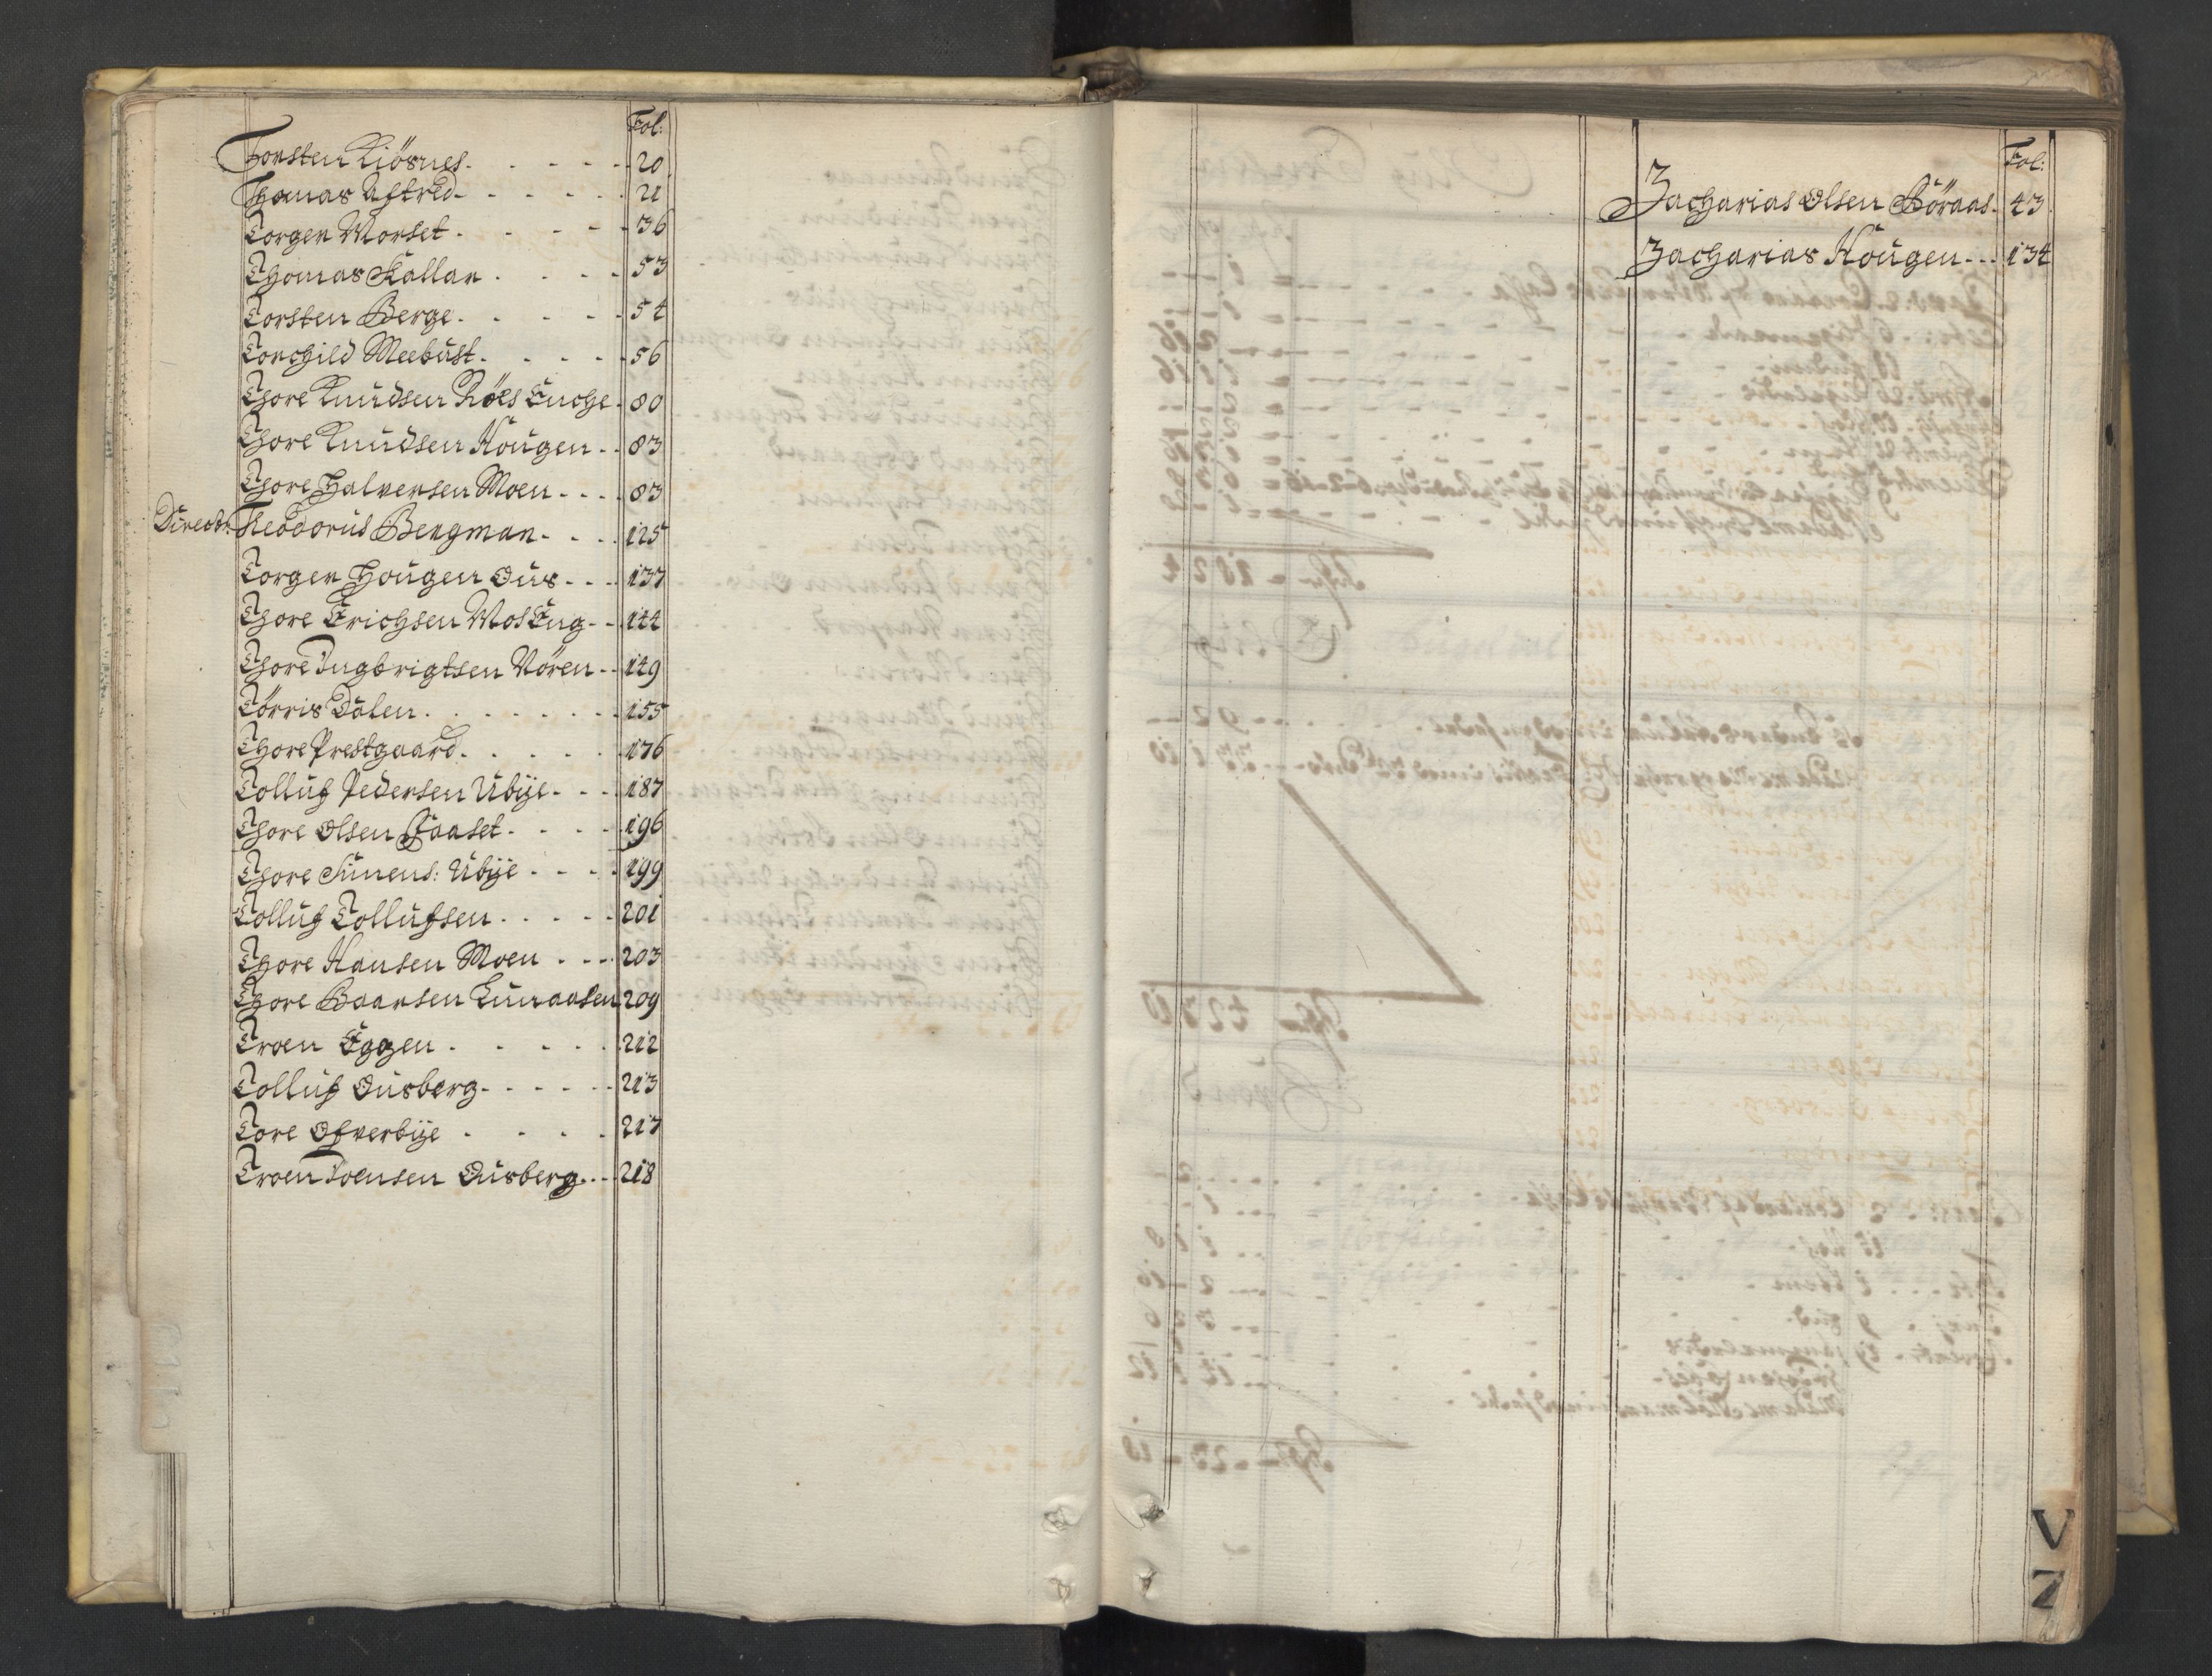 Fol:
Torsten Kiösnes 20
Thomas Aftred 21
Torger Morset 36
Thomas Kallar 53
Torsten Berge 54
Torchild Meebust 56
Thore Knudsen Röes Enche 80
Thore Knudsen Hougen 83
Thore Halversen Moen 83
Direct: Theodorus Bergman 125
Torger Hougen Ous 137
Thore Erichsen MosEng 144
Thore Ingbrigtsen Vören 149
Törris Dalen 155
Thore Prestgaard 176
Tolluf Pedersen Ubÿe 187
Thore Olsen Faaset 196
Thore Simens: Ubÿe 199
Tolluf Tollufsen 201
Thore Hansen Moen 203
Thore Baarsen Lunaasen 209
Troen Eggen 212
Tolluf Ousberg 213
Tore Ofverbÿe 217
Troen Joensen Ousberg 218
Fol:
Zacharias Olsen Böraas 43
Zacharias Hougen 134
V
Z